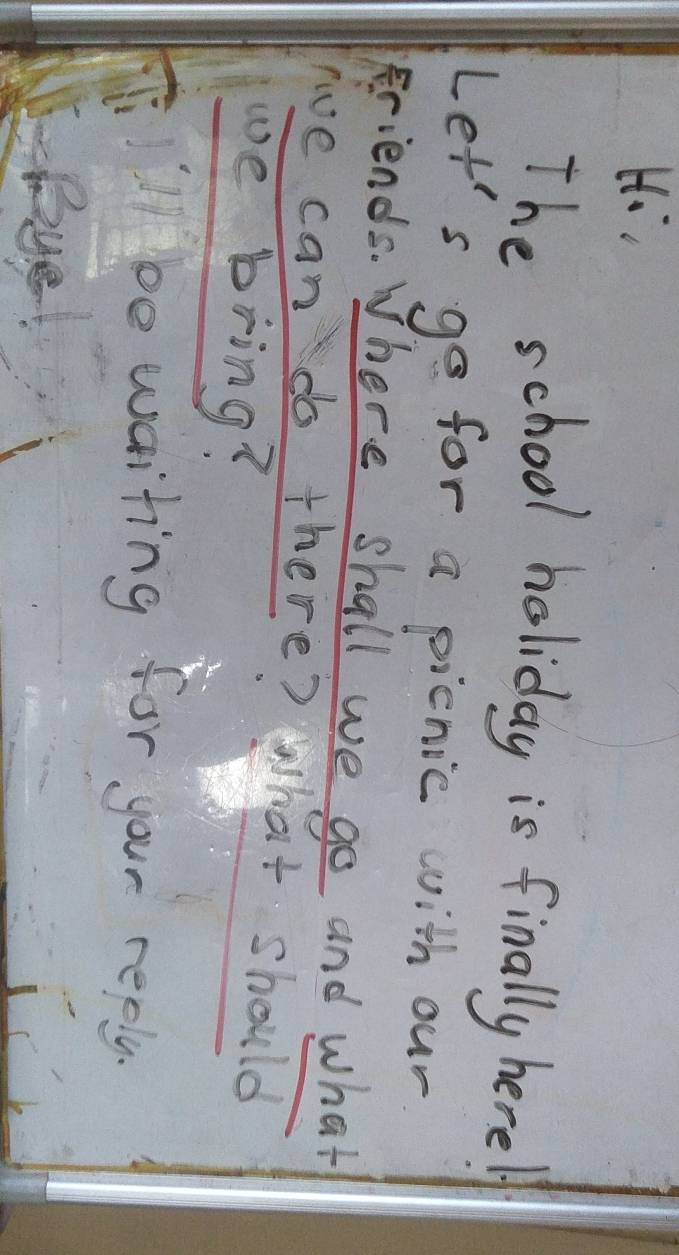 Hi,
The school holiday is finally here!
Let's go for a picnic with our
Friends. Where shall we go and what
we can do there? What should
we bring?
I'll be waiting for your reply.
Bye!